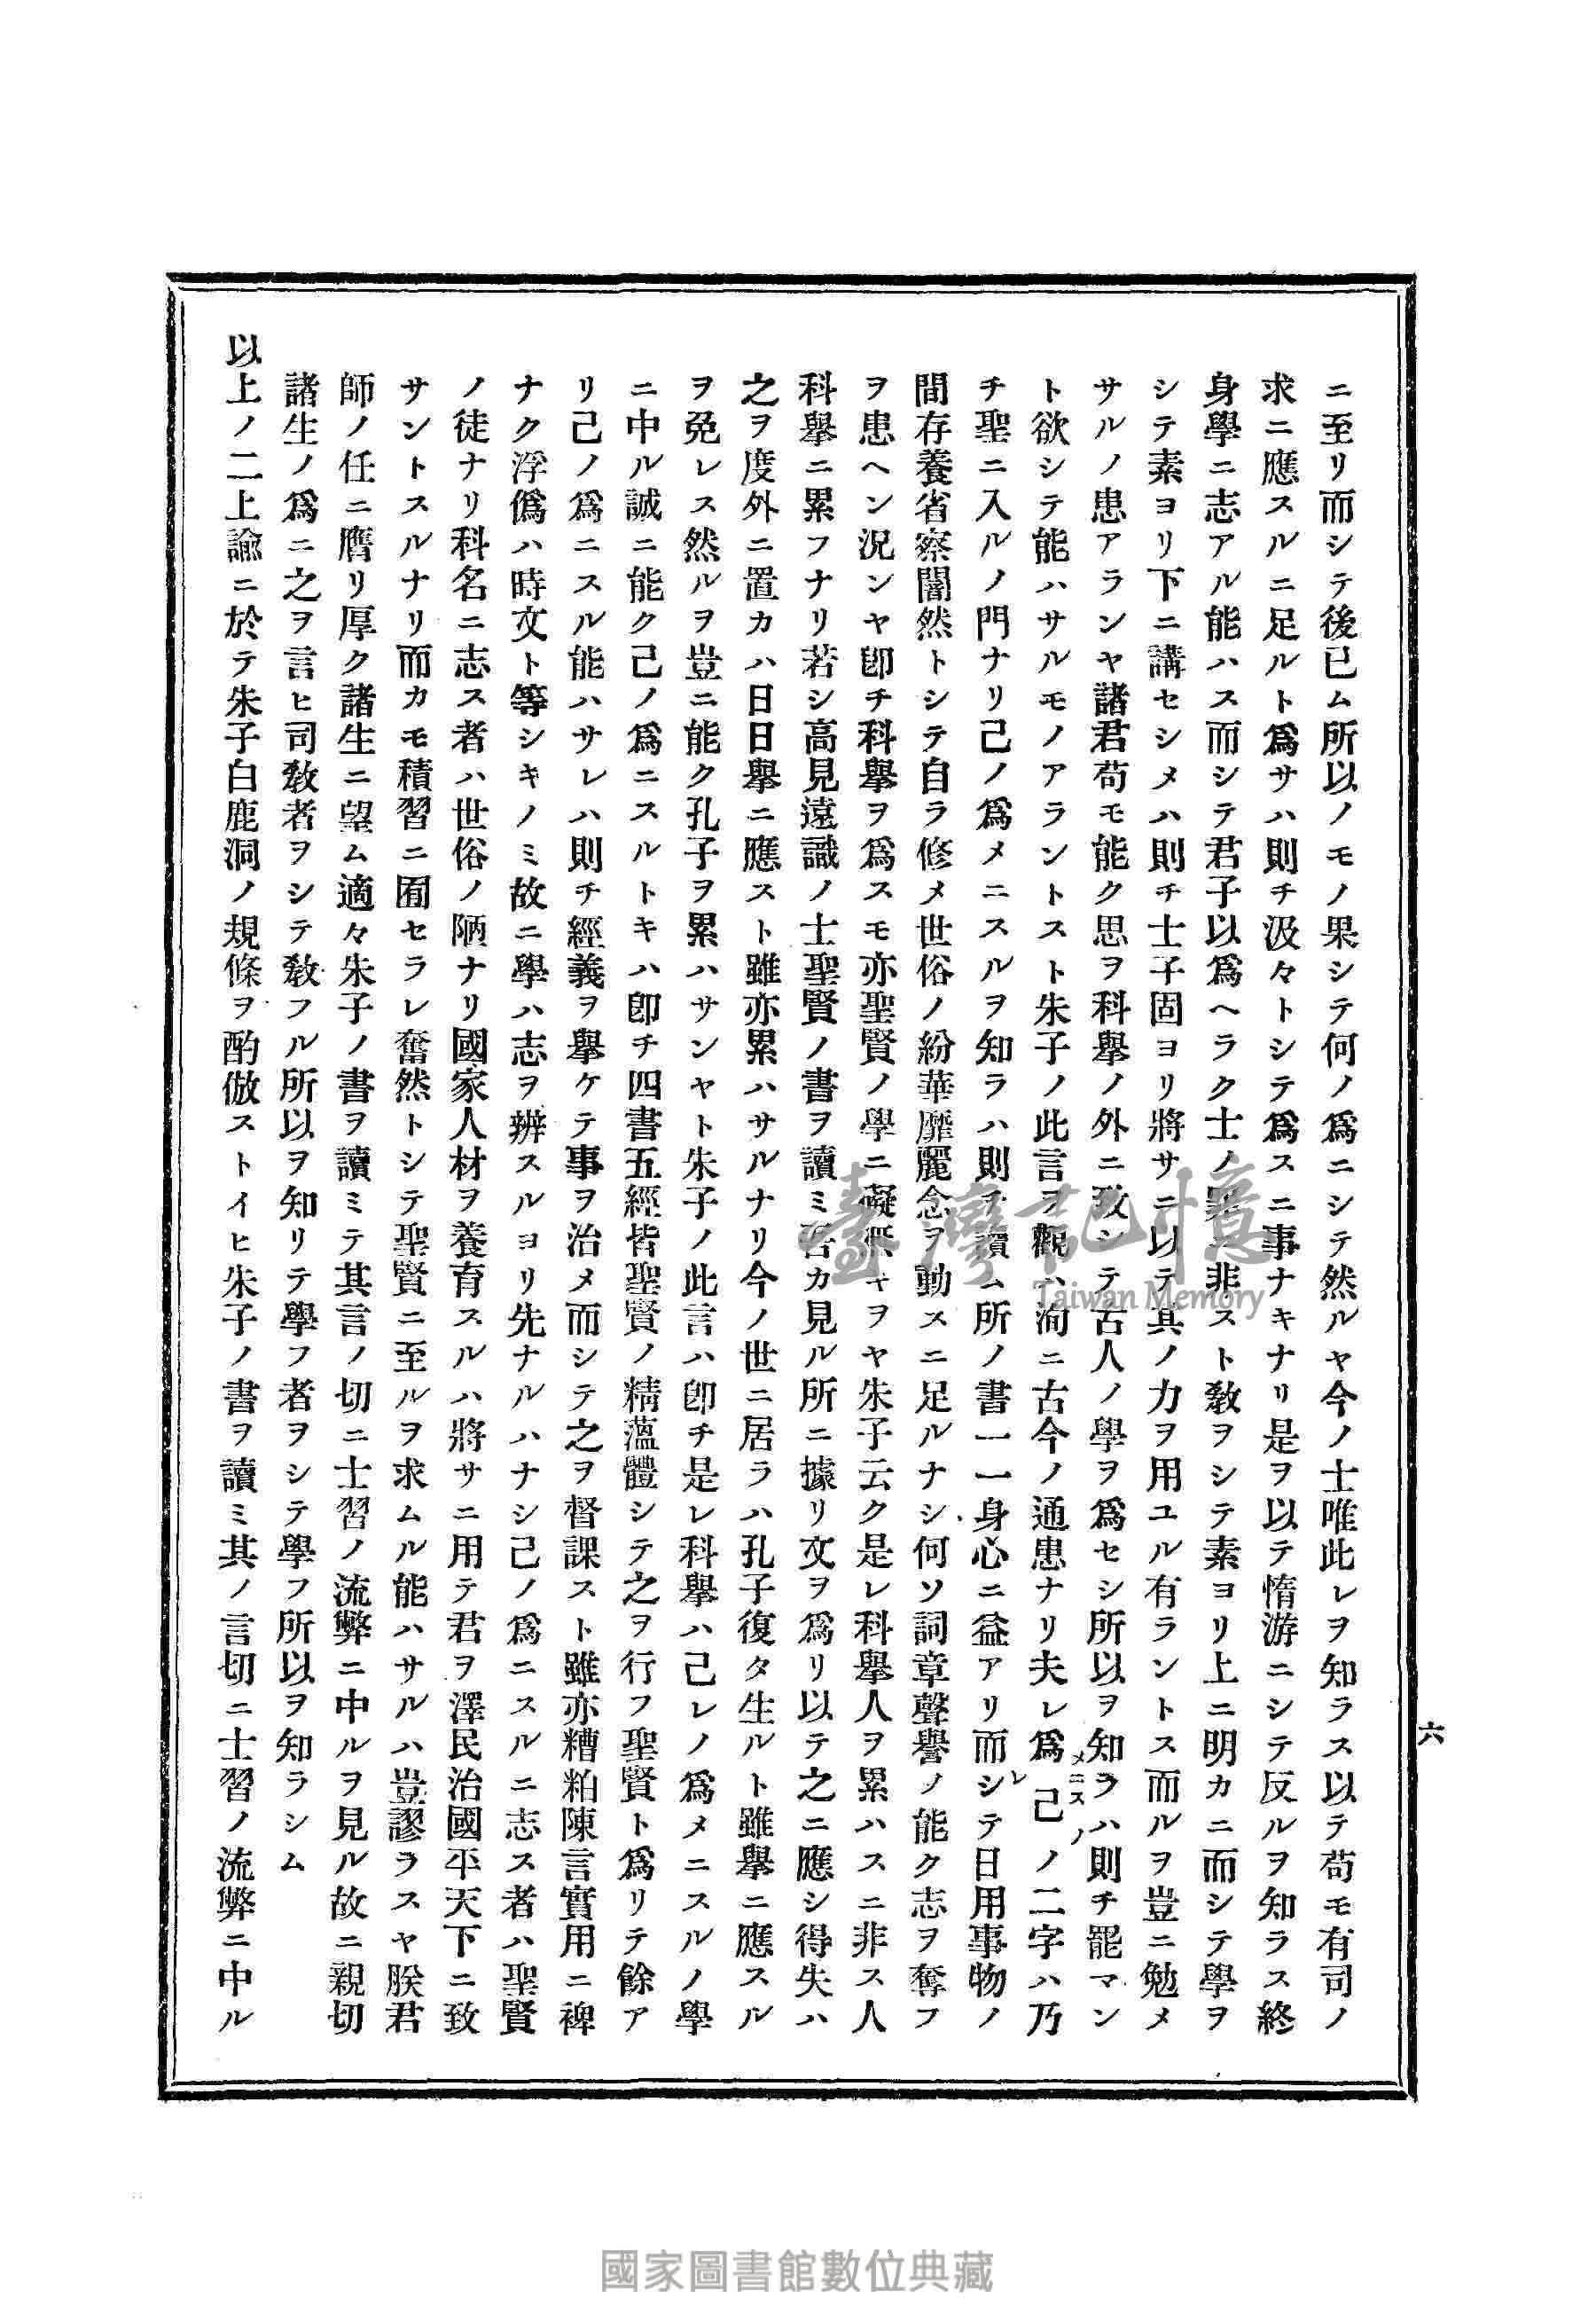 ニ至リ而シテ後已ム所以ノモノ果シテ何ノ爲ニシテ然ルヤ今ノ士唯此レヲ知ラス以テ苟モ有司ノ
求ニ應スルニ足ルト爲サハ則チ汲々トシテ爲スニ事ナキナリ是ヲ以テ惰游ニシテ反ルヲ知ラス終
身學ニ志アル能ハス而シテ君子以爲ヘラク士ノ罪ニ非スト教ヲシテ素ヨリ上ニ明カニ而シテ學ヲ
シテ素ヨリ下ニ講セシメハ則チ士子固ヨリ將サニ以テ其ノ力ヲ用ユル有ラントス而ルヲ豈ニ勉メ
サルノ患アランヤ諸君苟モ能ク思ヲ科擧ノ外ニ致シテ古人ノ學ヲ爲セシ所以ヲ知ラハ則チ罷マン
ト欲シテ能ハサルモノアラントスト朱子ノ此言ヲ觀ハ洵ニ古今ノ通患ナリ夫レ爲メニスレ己ノノ二字ハ乃
チ聖ニ入ルノ門ナリ己ノ爲メニスルヲ知ラハ則チ讀ム所ノ書一一身心ニ益アリ而シテ日用事物ノ
間存養省察闇然トシテ自ラ修メ世俗ノ紛華靡麗念ヲ動スニ足ルナシ何ソ詞章聲譽ノ能ク志ヲ奪フ
ヲ患ヘン況ンヤ卽チ科擧ヲ爲スモ亦聖賢ノ學ニ礙無キヲヤ朱子云ク是レ科擧人ヲ累ハスニ非ス人
科擧ニ累フナリ若シ高見遠識ノ士聖賢ノ書ヲ讀ミ吾カ見ル所ニ據リ文ヲ爲リ以テ之ニ應シ得失ハ
之ヲ度外ニ置カハ日日擧ニ應スト雖亦累ハサルナリ今ノ世ニ居ラハ孔子復タ生ルト雖擧ニ應スル
ヲ免レス然ルヲ豈ニ能ク孔子ヲ累ハサンヤト朱子ノ此言ハ卽チ是レ科擧ハ己レノ爲メニスルノ學
ニ中ル誠ニ能ク己ノ爲ニスルトキハ卽チ四書五經皆聖賢ノ精薀體シテ之ヲ行フ聖賢ト爲リテ餘ア
リ己ノ爲ニスル能ハサレハ則チ經義ヲ擧ケテ事ヲ治メ而シテ之ヲ督課スト雖亦糟粕陳言實用ニ裨
ナク浮僞ハ時文ト等シキノミ故ニ學ハ志ヲ辨スルヨリ先ナルハナシ己ノ爲ニスルニ志ス者ハ聖賢
ノ徒ナリ科名ニ志ス者ハ世俗ノ陋ナリ國家人材ヲ養育スルハ將サニ用テ君ヲ澤民治國平天下ニ致
サントスルナリ而カモ積習ニ囿セラレ奮然トシテ聖賢ニ至ルヲ求ムル能ハサルハ豈謬ラスヤ朕君
師ノ任ニ膺リ厚ク諸生ニ望ム適々朱子ノ書ヲ讀ミテ其言ノ切ニ士習ノ流弊ニ中ルヲ見ル故ニ親切
諸生ノ爲ニ之ヲ言ヒ司敎者ヲシテ敎フル所以ヲ知リテ學フ者ヲシテ學フ所以ヲ知ラシム
以上ノ二上諭ニ於テ朱子白鹿洞ノ規條ヲ酌倣ストイヒ朱子ノ書ヲ讀ミ其ノ言切ニ士習ノ流弊ニ中ル
六
臺灣記憶
Taiwan Memory
國家圖書館數位典藏